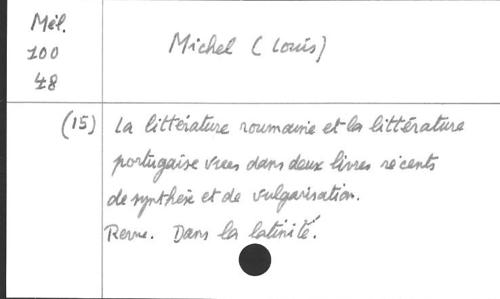 Mél.
100
48
Michel (Louis)
(15) La littérature roumaine et la littérature
portugaise vues dans deux livres récents
de synthèse et de vulgarisation.
Revue. Dans la latinité.